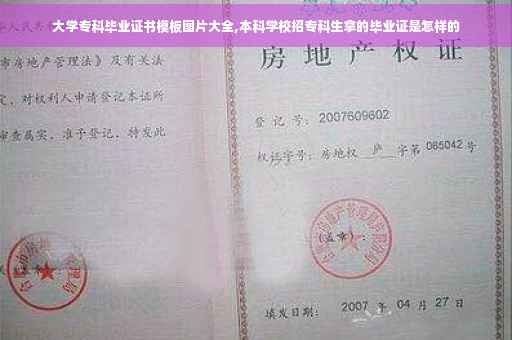 大学专科毕业证书模板图片大全,本科学校招专科生拿的毕业证是怎样的
市房地产管理法》及有关法
定，对权利人申请登记本证所
审查属实，准予登记，特发此
房地产权
登记号：2007609602
权证字号：房地权 庐 字第 065042 号
(盖章)：
填发日期： 2007 年 04 月 27 日